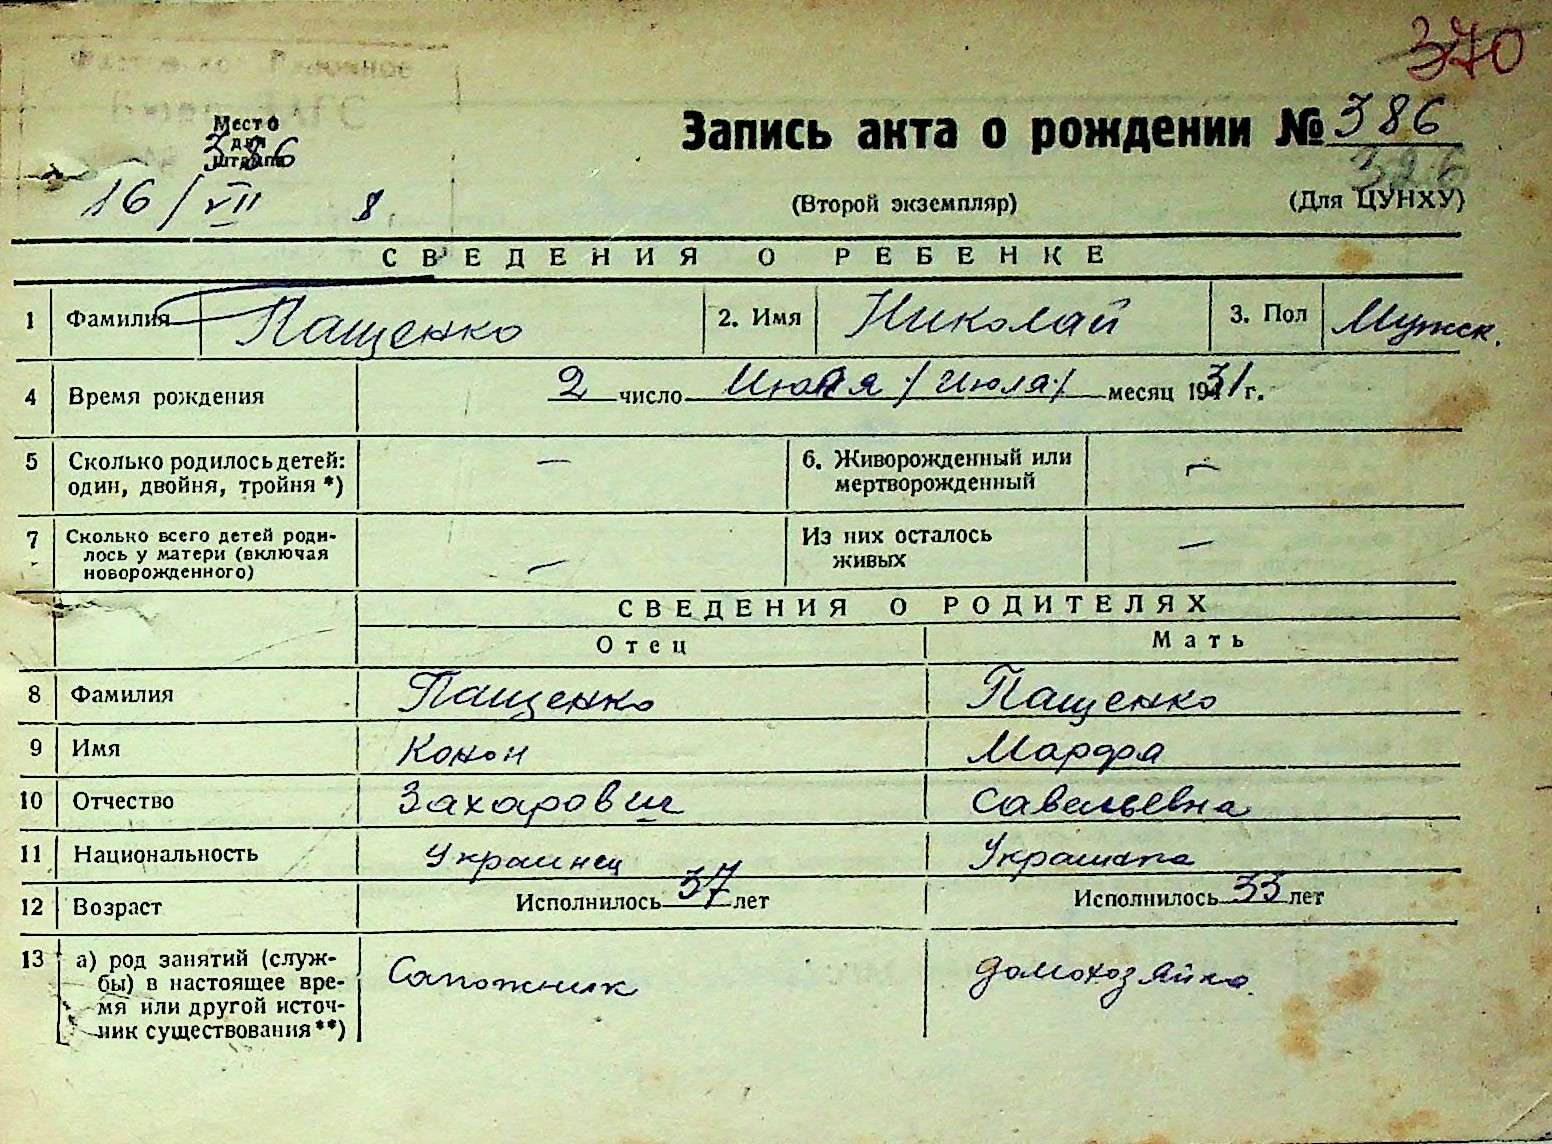 370
Место
для
штампа
386
16/VII 8
Запись акта о рождении № 386
326
(Второй экземпляр) (Для ЦУНХУ)
СВЕДЕНИЯ О РЕБЕНКЕ
1 Фамилия Пащенко 2. Имя Николай 3. Пол Мужск.
4 Время рождения 2 число Июля /Июля/ месяц 1931 г.
5 Сколько родилось детей: — 6. Живорожденный или —
один, двойня, тройня *) мертворожденный
7 Сколько всего детей роди- Из них осталось
лось у матери (включая — живых —
новорожденного)
СВЕДЕНИЯ О РОДИТЕЛЯХ
Отец Мать
8 Фамилия Пащенко Пащенко
9 Имя Конон Марфа
10 Отчество Захарович Савельевна
11 Национальность Украинец Украинка
12 Возраст Исполнилось 37 лет Исполнилось 33 лет
13 а) род занятий (служ- Сапожник домохозяйка
бы) в настоящее вре-
мя или другой источ-
ник существования **)